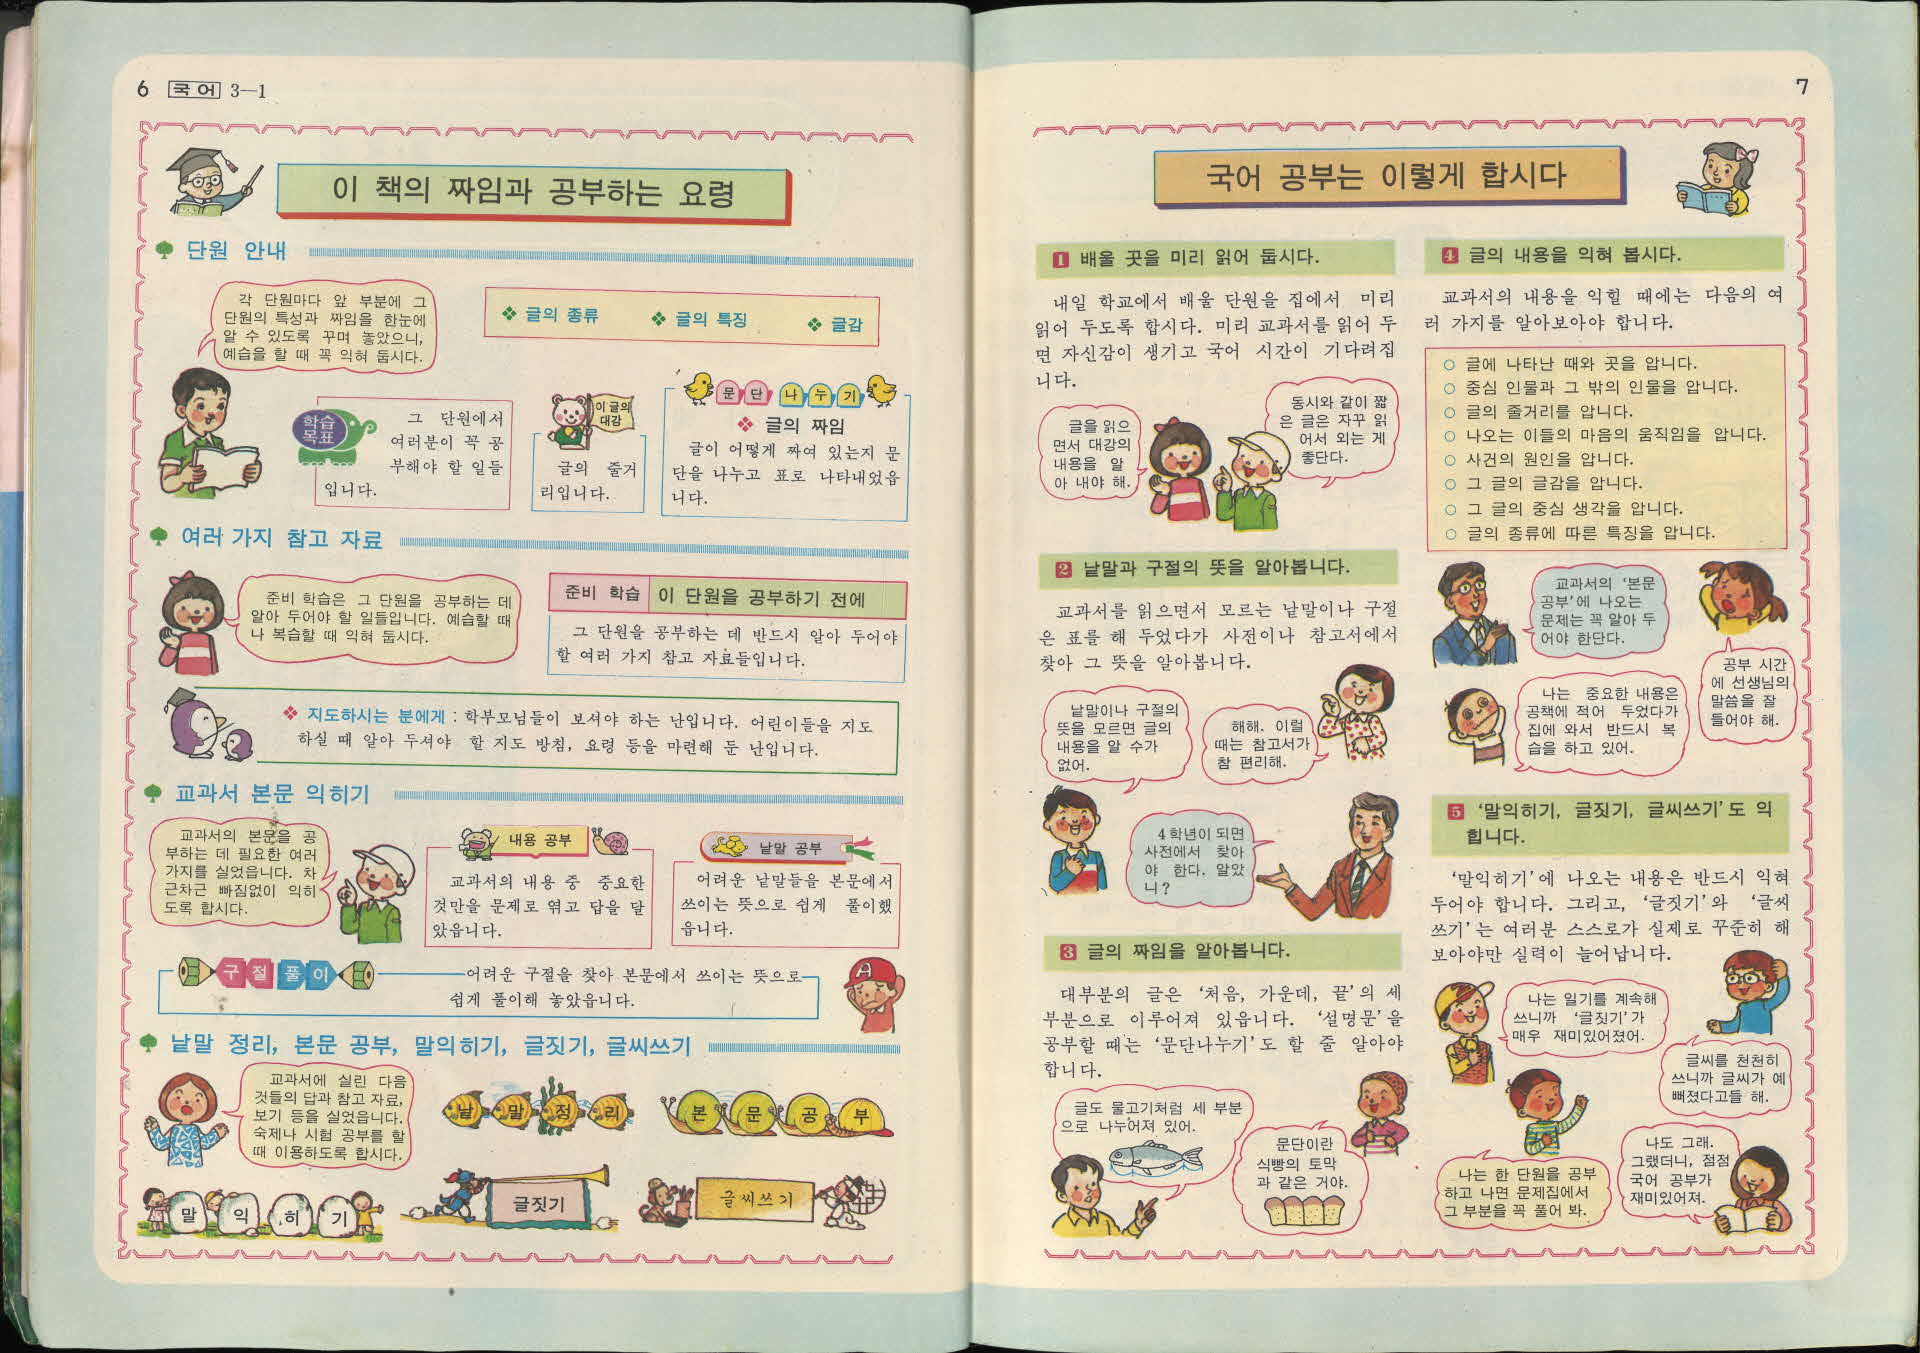 6 국어 3—1
이 책의 짜임과 공부하는 요령
단원 안내
각 단원마다 앞 부분에 그
단원의 특성과 짜임을 한눈에
알 수 있도록 꾸며 놓았으니,
예습을 할 때 꼭 익혀 둡시다.
❖ 글의 종류 ❖ 글의 특징 ❖ 글감
학습
목표
그 단원에서
여러분이 꼭 공
부해야 할 일들
입니다.
이 글의
대강
글의 줄거
리입니다.
문단 나누기
❖ 글의 짜임
글이 어떻게 짜여 있는지 문
단을 나누고 표로 나타내었읍
니다.
여러 가지 참고 자료
준비 학습은 그 단원을 공부하는 데
알아 두어야 할 일들입니다. 예습할 때
나 복습할 때 익혀 둡시다.
준비 학습 이 단원을 공부하기 전에
그 단원을 공부하는 데 반드시 알아 두어야
할 여러 가지 참고 자료들입니다.
❖ 지도하시는 분에게 : 학부모님들이 보셔야 하는 난입니다. 어린이들을 지도
하실 때 알아 두셔야 할 지도 방침, 요령 등을 마련해 둔 난입니다.
교과서 본문 익히기
교과서의 본문을 공
부하는 데 필요한 여러
가지를 실었읍니다. 차
근차근 빠짐없이 익히
도록 합시다.
내용 공부
교과서의 내용 중 중요한
것만을 문제로 엮고 답을 달
았읍니다.
낱말 공부
어려운 낱말들을 본문에서
쓰이는 뜻으로 쉽게 풀이했
읍니다.
구절풀이
어려운 구절을 찾아 본문에서 쓰이는 뜻으로
쉽게 풀이해 놓았읍니다.
A
낱말 정리, 본문 공부, 말익히기, 글짓기, 글씨쓰기
교과서에 실린 다음
것들의 답과 참고 자료,
보기 등을 실었읍니다.
숙제나 시험 공부를 할
때 이용하도록 합시다.
낱말정리
본문공부
말익히기
글짓기
글씨쓰기
7
국어 공부는 이렇게 합시다
1 배울 곳을 미리 읽어 둡시다.
내일 학교에서 배울 단원을 집에서 미리
읽어 두도록 합시다. 미리 교과서를 읽어 두
면 자신감이 생기고 국어 시간이 기다려집
니다.
글을 읽으
면서 대강의
내용을 알
아 내야 해.
동시와 같이 짧
은 글은 자꾸 읽
어서 외는 게
좋단다.
2 낱말과 구절의 뜻을 알아봅니다.
교과서를 읽으면서 모르는 낱말이나 구절
은 표를 해 두었다가 사전이나 참고서에서
찾아 그 뜻을 알아봅니다.
낱말이나 구절의
뜻을 모르면 글의
내용을 알 수가
없어.
해해. 이럴
때는 참고서가
참 편리해.
4학년이 되면
사전에서 찾아
야 한다. 알았
니?
3 글의 짜임을 알아봅니다.
대부분의 글은 ‘처음, 가운데, 끝’의 세
부분으로 이루어져 있읍니다. ‘설명문’을
공부할 때는 ‘문단나누기’도 할 줄 알아야
합니다.
글도 물고기처럼 세 부분
으로 나누어져 있어.
문단이란
식빵의 토막
과 같은 거야.
4 글의 내용을 익혀 봅시다.
교과서의 내용을 익힐 때에는 다음의 여
러 가지를 알아보아야 합니다.
○ 글에 나타난 때와 곳을 압니다.
○ 중심 인물과 그 밖의 인물을 압니다.
○ 글의 줄거리를 압니다.
○ 나오는 이들의 마음의 움직임을 압니다.
○ 사건의 원인을 압니다.
○ 그 글의 글감을 압니다.
○ 그 글의 중심 생각을 압니다.
○ 글의 종류에 따른 특징을 압니다.
교과서의 ‘본문
공부’에 나오는
문제는 꼭 알아 두
어야 한단다.
공부 시간
에 선생님의
말씀을 잘
들어야 해.
나는 중요한 내용은
공책에 적어 두었다가
집에 와서 반드시 복
습을 하고 있어.
5 ‘말익히기, 글짓기, 글씨쓰기’도 익
힙니다.
‘말익히기’에 나오는 내용은 반드시 익혀
두어야 합니다. 그리고, ‘글짓기’와 ‘글씨
쓰기’는 여러분 스스로가 실제로 꾸준히 해
보아야만 실력이 늘어납니다.
나는 일기를 계속해
쓰니까 ‘글짓기’가
매우 재미있어졌어.
글씨를 천천히
쓰니까 글씨가 예
뻐졌다고들 해.
나는 한 단원을 공부
하고 나면 문제집에서
그 부분을 꼭 풀어 봐.
나도 그래.
그랬더니, 점점
국어 공부가
재미있어져.